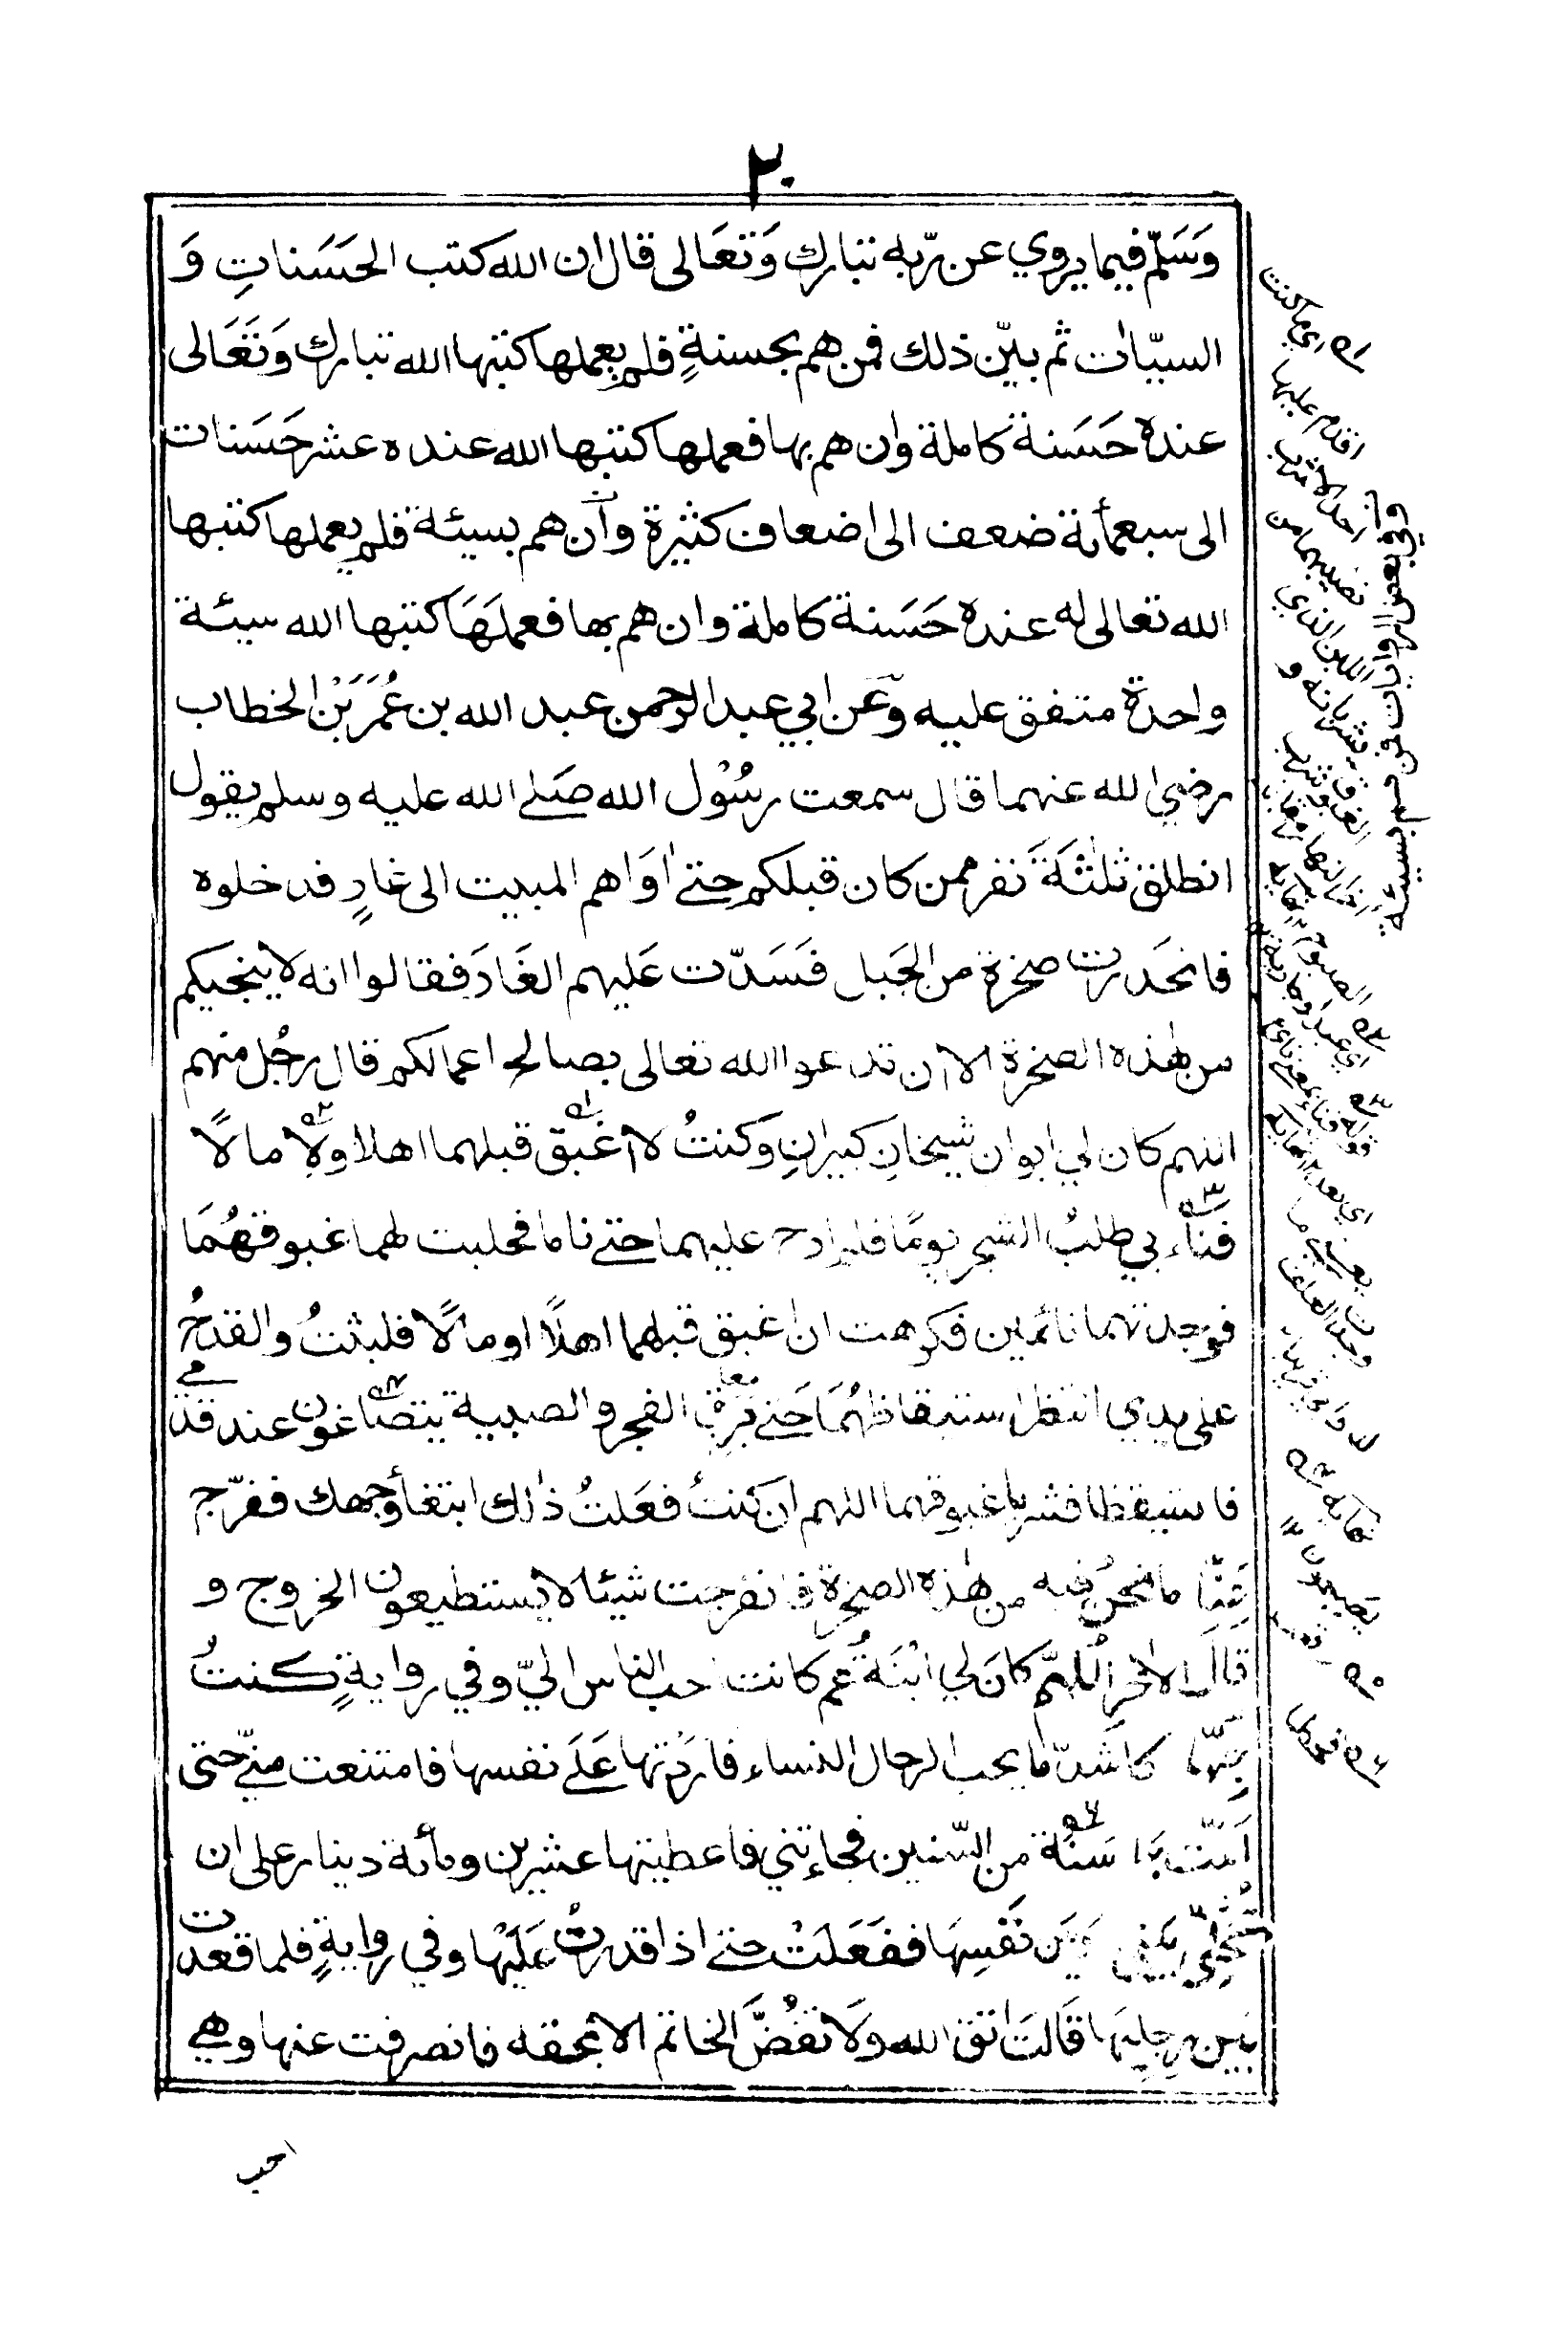 ٢٠
وَسَلّم فيما يروي عن رّبه تبارك وَتعَالى قال ان الله كتب الحَسَناتِ وَ
السيّاٰت ثم بيّن ذلك فمن هم بحسنةٍ فلم يعملها كتبها الله تبارك وَتعَالى
عنده حَسَنة كاملة وان هم بها فعملها كتبها الله عنده عشر حَسَنات
الى سبعمأئة ضعف الى اضعاف كثيرة وان هم بسيئة فلم يعملها كتبها
الله تعالى له عنده حَسَنة كاملة وان هم بها فعملَهَا كتبها الله سيئة
واحدة متفق عليه وّعَن ابي عبد الرحمن عبد الله بن عُمَرَ بَنْ الخطاب
رضي الله عنهما قال سمعت رسُوْل الله صَلى الله عليه وسلم يقول
انطلق ثلٰثَةَ نفر ممن كان قبلكم حتى اٰوَاهم المبيت الى غارٍ فدخلوه
فانحَدرت صخرة من الجَبل فَسَدّت عَليهم الغَارَ فقالوا انه لا ينجيكم
من هٰذه الصخرة الا ان تدعوا الله تعالى بصالح اعمالكم قال رجُل منهم
اللهم كان لي ابوان شيخانِ كبيرانِ وَكنتُ لا اغبق قبلهما اهلا ولا مالًا
فنأء بي طلبُ الشجر يومًا فلم ارح عليهما حتى ناما فحلبت لهما غبوقهُمَا
فوجدتهما نائمين فكرهت ان اغبق قبلهما اهلًا او مالًا فلبثتُ والقدحُ
على يدي انتظر استيقاظهُمَا حَتى برق الفجر والصبية يتضاغون عند قدمي
فاستيقظا فشربا غبوقهما اللهم ان كنتُ فعَلتُ ذٰلك ابتغأ وجهك ففرّج
عَنّا ما نحنُ فيه من هٰذه الصخرة فانفرجت شيئا لا يستطيعون الخروج و
قالَ الاٰخر اللهمّ كانَ لي ابْنَةُ عم كانت احب الناس اليّ وفي روايةٍ كنتُ
كاشدّ ما يحب الرجال النساء فاردْتها عَلَى نفسها فامتنعت منّي حتى
سَنة من السّنين فجاءتني فاعطيتها عشرين ومأئة دينار على ان
نَفسِهَا ففَعَلَتْ حتى اذا قدرتُ عَلَيْها وفي روايةٍ فلما قعدت
بَين رجليها قَالَت اتق الله وَلا تفُضَّ الخاتم الا بحقه فانصرفت عنها وهي
احب
وفي بعض الروايات فمن هم بسيئة
اي ما كنت
اقدم عليها
احدا في شرب
نصيبهما من
اللبن الذي
يشربانه و